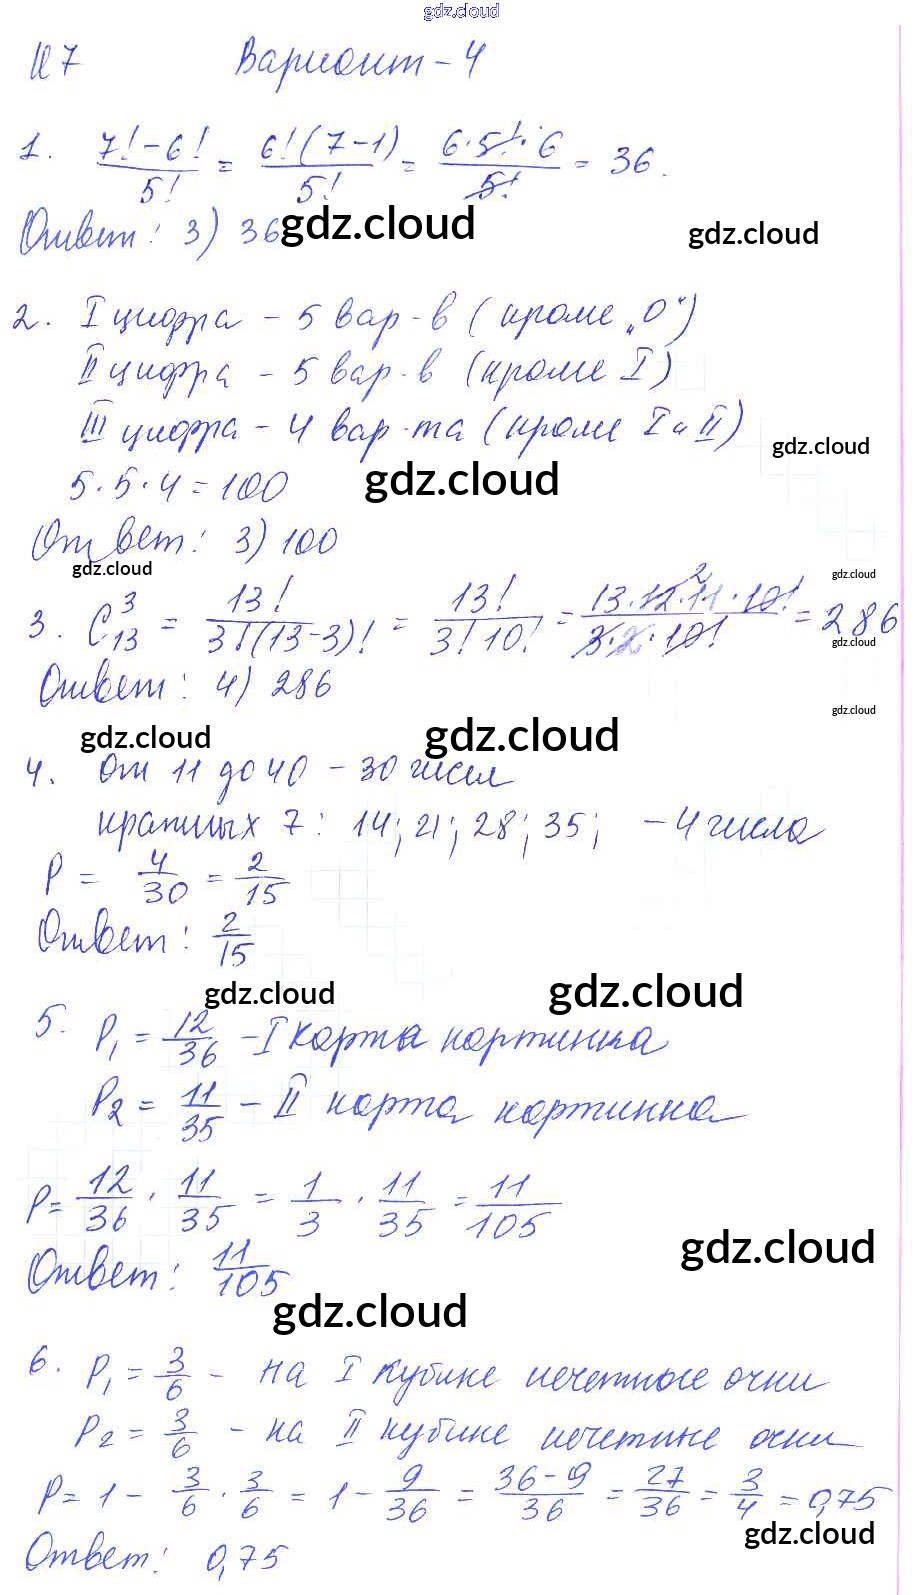 gdz.cloud
И7 Вариант - 4
1. (7! - 6!)/5! = 6!(7-1)/5! = 6·5!·6/5! = 36.
Ответ: 3) 36 gdz.cloud gdz.cloud
2. I цифра - 5 вар-в (кроме „0“)
II цифра - 5 вар-в (кроме I)
III цифра - 4 вар-та (кроме I и II)
gdz.cloud
5·5·4 = 100 gdz.cloud
Ответ: 3) 100
gdz.cloud gdz.cloud
3. C₁₃³ = 13!/3!(13-3)! = 13!/3!10! = 13·12·11·10!/3·2·10! = 286
2
gdz.cloud
Ответ: 4) 286
gdz.cloud
gdz.cloud gdz.cloud
4. От 11 до 40 - 30 чисел
кратных 7: 14; 21; 28; 35; - 4 числа
P = 4/30 = 2/15
Ответ: 2/15
gdz.cloud gdz.cloud
5. P₁ = 12/36 - I карта картинка
P₂ = 11/35 - II карта картинка
P = 12/36 · 11/35 = 1/3 · 11/35 = 11/105
gdz.cloud
Ответ: 11/105
gdz.cloud
6. P₁ = 3/6 - на I кубике нечетные очки
P₂ = 3/6 - на II кубике нечетные очки
P = 1 - 3/6 · 3/6 = 1 - 9/36 = (36-9)/36 = 27/36 = 3/4 = 0,75
gdz.cloud
Ответ: 0,75